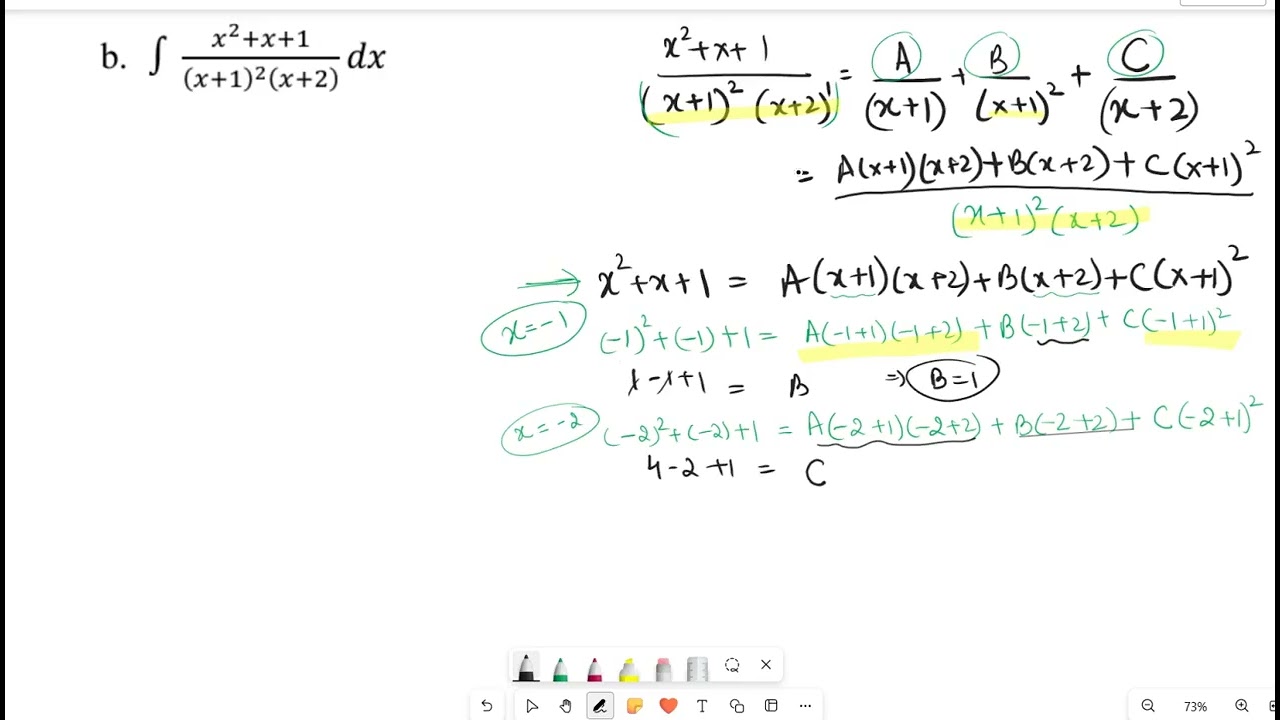 b. ∫ x²+x+1 / (x+1)²(x+2) dx
x²+x+1 / (x+1)² (x+2)¹ = A / (x+1) + B / (x+1)² + C / (x+2)
= A(x+1)(x+2)+B(x+2)+C(x+1)² / (x+1)²(x+2)
⇒ x²+x+1 = A(x+1)(x+2)+B(x+2)+C(x+1)²
x=-1 (-1)²+(-1)+1 = A(-1+1)(-1+2)+B(-1+2)+C(-1+1)²
1-1+1 = B ⇒ B=1
x=-2 (-2)²+(-2)+1 = A(-2+1)(-2+2)+B(-2+2)+C(-2+1)²
4-2+1 = C
T ...
73%